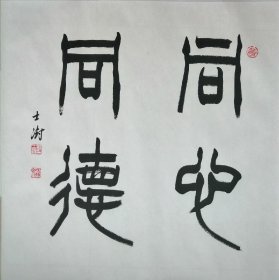 同心
同德
士澍